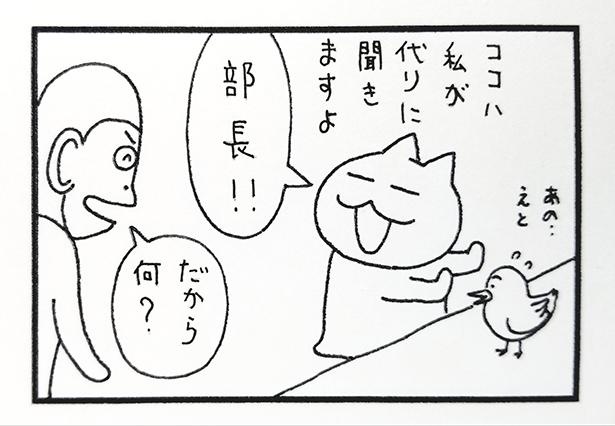 ココハ
私が
代りに
聞き
ますよ
あの…
えと
部長!!
だから
何?